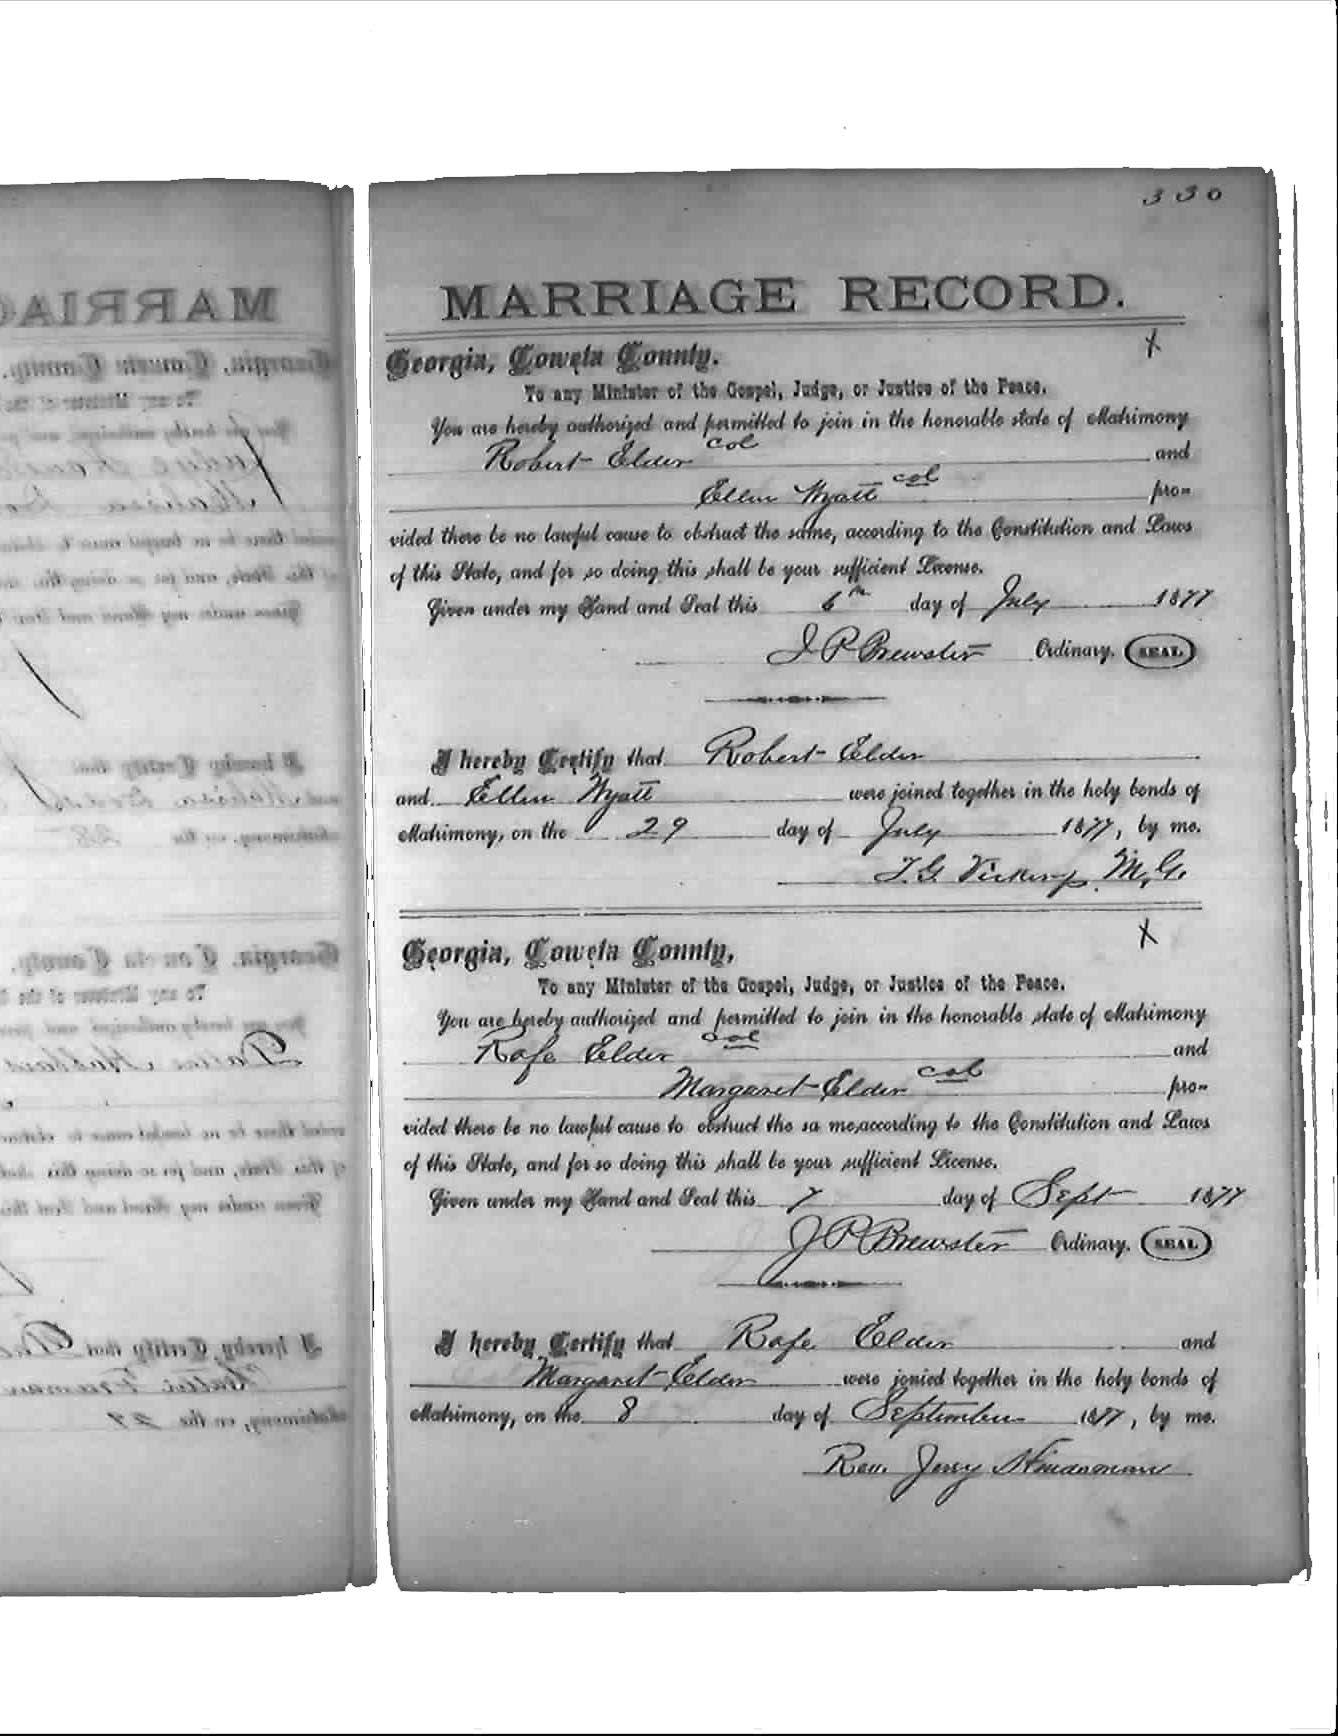 330
MARRIAGE RECORD.
Georgia, Coweta County. X
To any Minister of the Gospel, Judge, or Justice of the Peace.
You are hereby authorized and permitted to join in the honorable state of Matrimony
Robert Elder col and
Ellen Wyatt col pro-
vided there be no lawful cause to obstruct the same, according to the Constitution and Laws
of this State, and for so doing this shall be your sufficient License.
Given under my Hand and Seal this 6th day of July 1877
J P Brewster Ordinary. SEAL
I hereby Certify that Robert Elder
and Ellen Wyatt were joined together in the holy bonds of
Matrimony, on the 29 day of July 1877, by me.
T. G. M. G.
Georgia, Coweta County, X
To any Minister of the Gospel, Judge, or Justice of the Peace.
You are hereby authorized and permitted to join in the honorable state of Matrimony
Rafe Elder col and
Margaret Elder col pro-
vided there be no lawful cause to obstruct the sa me,according to the Constitution and Laws
of this State, and for so doing this shall be your sufficient License.
Given under my Hand and Seal this 7 day of Sept 1877
J P Brewster Ordinary. SEAL
I hereby Certify that Rafe Elder and
Margaret Elder were jonied together in the holy bonds of
Matrimony, on the 8 day of September 1877, by me.
Rev. Jerry